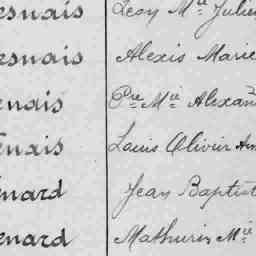 esnais Léon M^ie Julien
esnais Alexis Marie
enais P^re M^ie Alexan
enais Louis Olivier Am
énard Jean Baptist
enard Mathurin M^ie